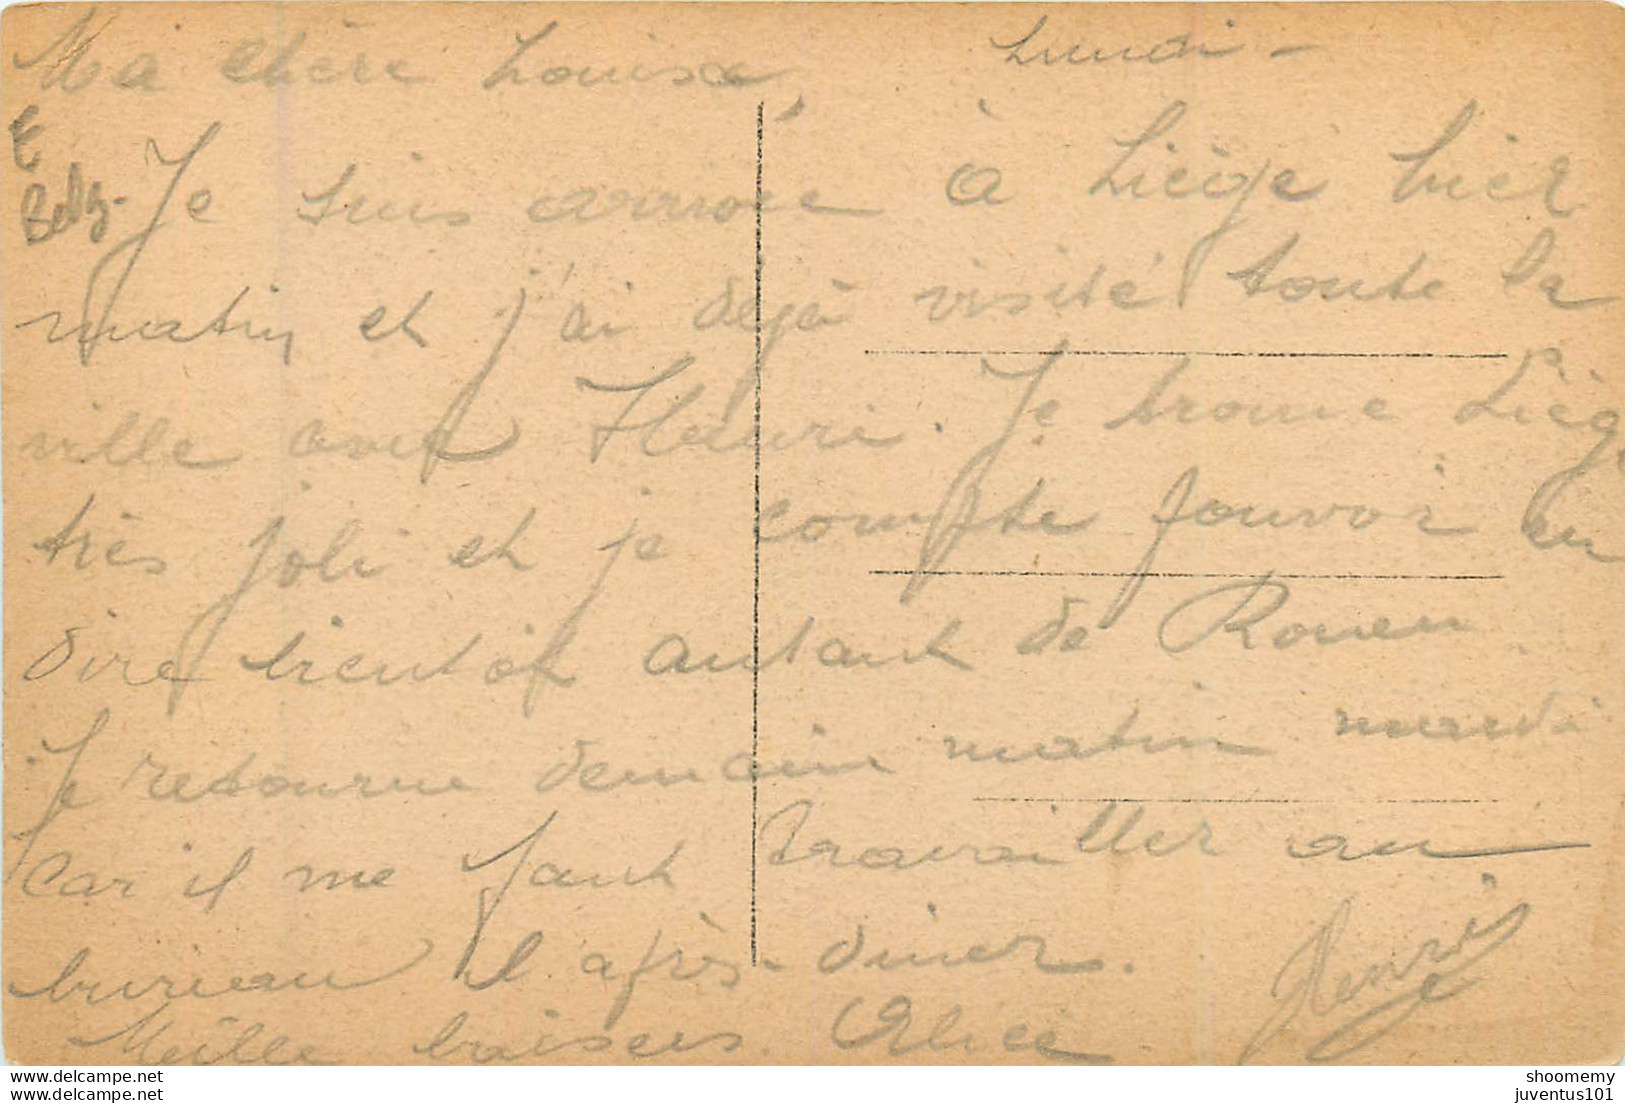 Lundi -
Ma chère Louise,
E
Belg.
Je suis arrivée à Liège hier
matin et j'ai déjà visité toute la
ville avec Henri. Je trouve Liège
très joli et je compte pouvoir en
dire bientôt autant de Rouen
Je retourne demain matin mardi
car il me faut travailler au
bureau l'après-diner.
Mille baisers. Alice
Henri
shoomemy
www.delcampe.net
juventus101